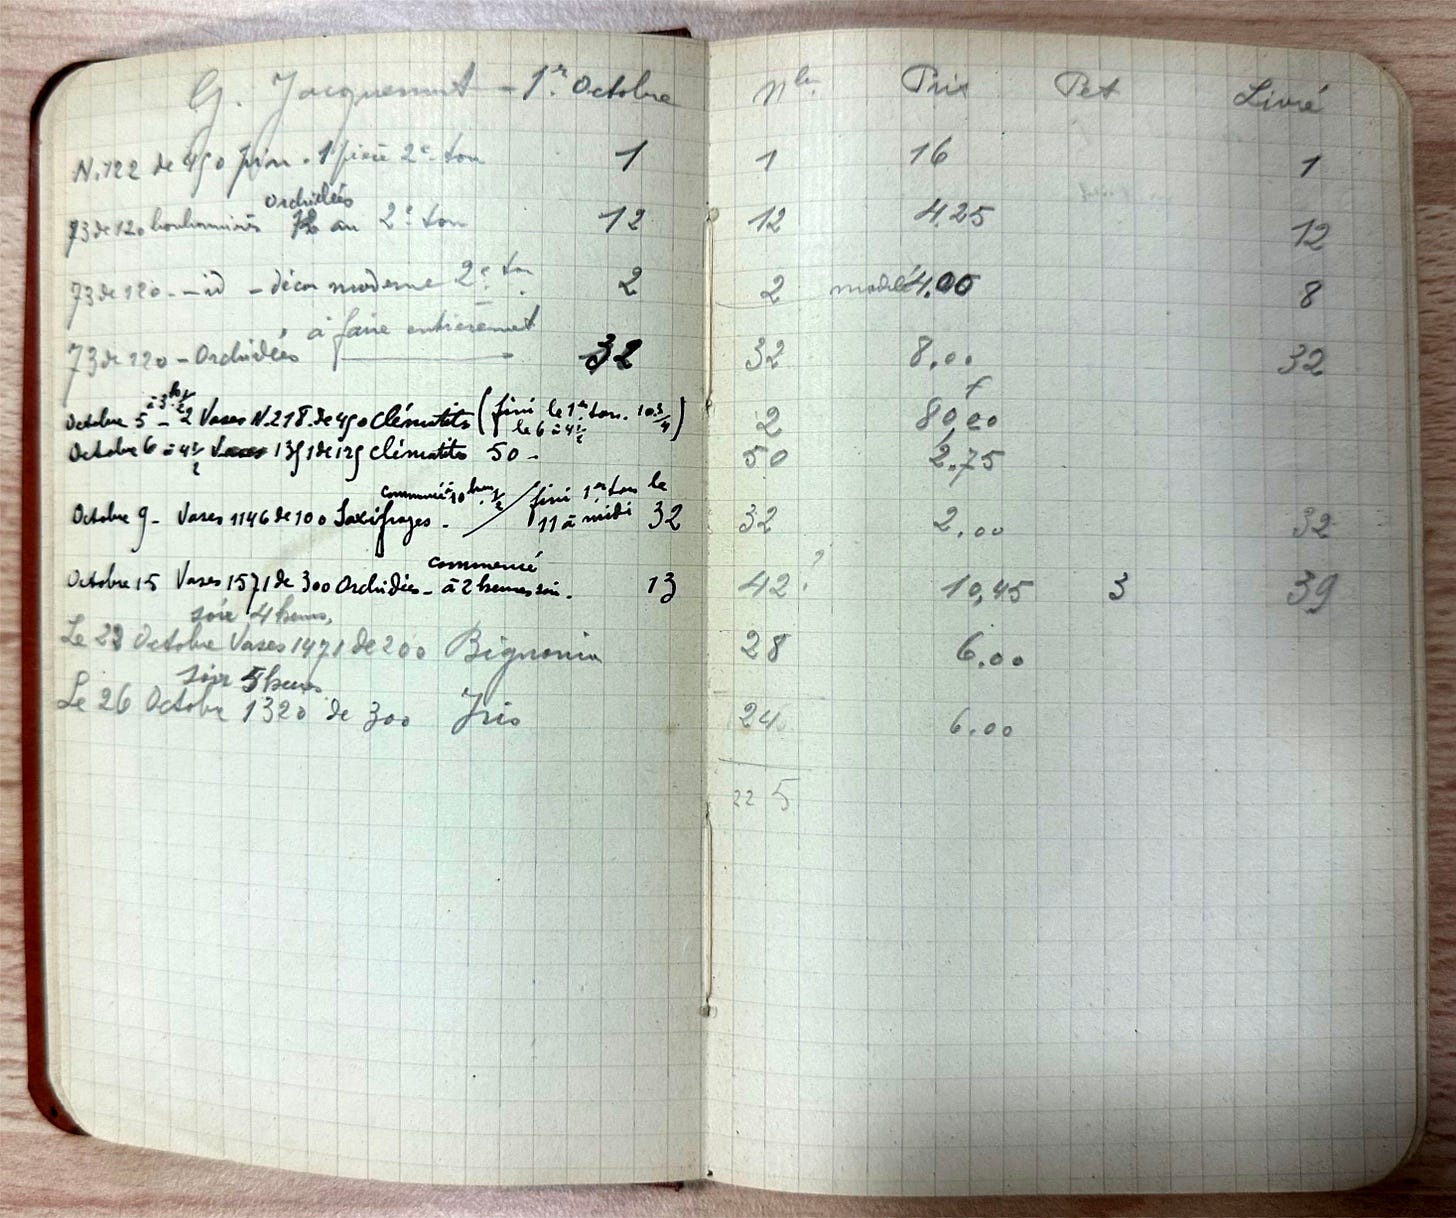 G. Jacquemut - 1er Octobre
N. 122 de 450 - 1 pièce 2e ton 1
Orchidées
73 de 120 bonbonnières au 2e ton 12
73 de 120 - id - décor moderne 2e ton 2
à faire entièrement
73 de 120 - Orchidées 32
à 3 h 1/2
Octobre 5 - 2 Vases N. 218 de 450 Clématites (fini le 1er ton. 10 3/4
le 6 à 4 1/2)
Octobre 6 à 4 1/2 Vases 1351 de 125 Clématites 50 -
commencé à 10 heures 1/2 / fini 1er ton le
Octobre 9 - Vases 1146 de 100 Saxifrages. - 11 à midi 32
commencé
Octobre 15 Vases 1571 de 300 Orchidées - à 2 heures soir. 13
soir 4 heures,
Le 22 Octobre Vases 1471 de 200 Bignonia
soir 5 heures
Le 26 Octobre 1320 de 300 Iris
Nbr. Prix Pet Livré
1 16 1
12 4.25 12
2 modele 4.00 8
32 8.00 32
f
2 80,00
50 2.75
32 2.00 32
42 ? 10,45 3 39
28 6.00
24 6.00
22 5